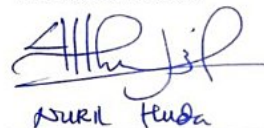 NURIL Huda